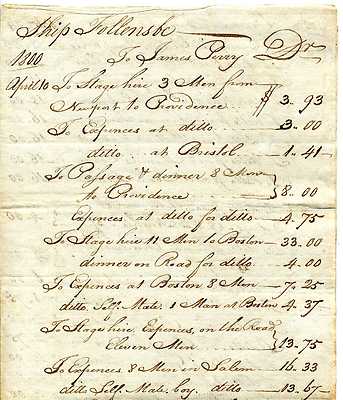 Ship Follensbe
1800 To James Perry Dr
April 10 To Stage hire 3 Men from
Newport to Providence .. $3 .. 93
To Expences at ditto .. 3 .. 00
ditto .. at Bristol .. 1 .. 41
To Passage & dinner 8 Men
to Providence 8 .. 00
Expences at ditto for ditto 4 .. 75
To Stage hire 11 Men to Boston 33 .. 00
dinner on Road for ditto 4 .. 00
To Expences at Boston 8 Men 7 .. 25
ditto Self Mate 1 Man at Boston 4 .. 37
To Stage hire Expences, on the Road
Eleven Men 13 .. 75
To Expences 8 Men in Salem 16 .. 33
ditto Self Mate boy ditto 13 .. 67